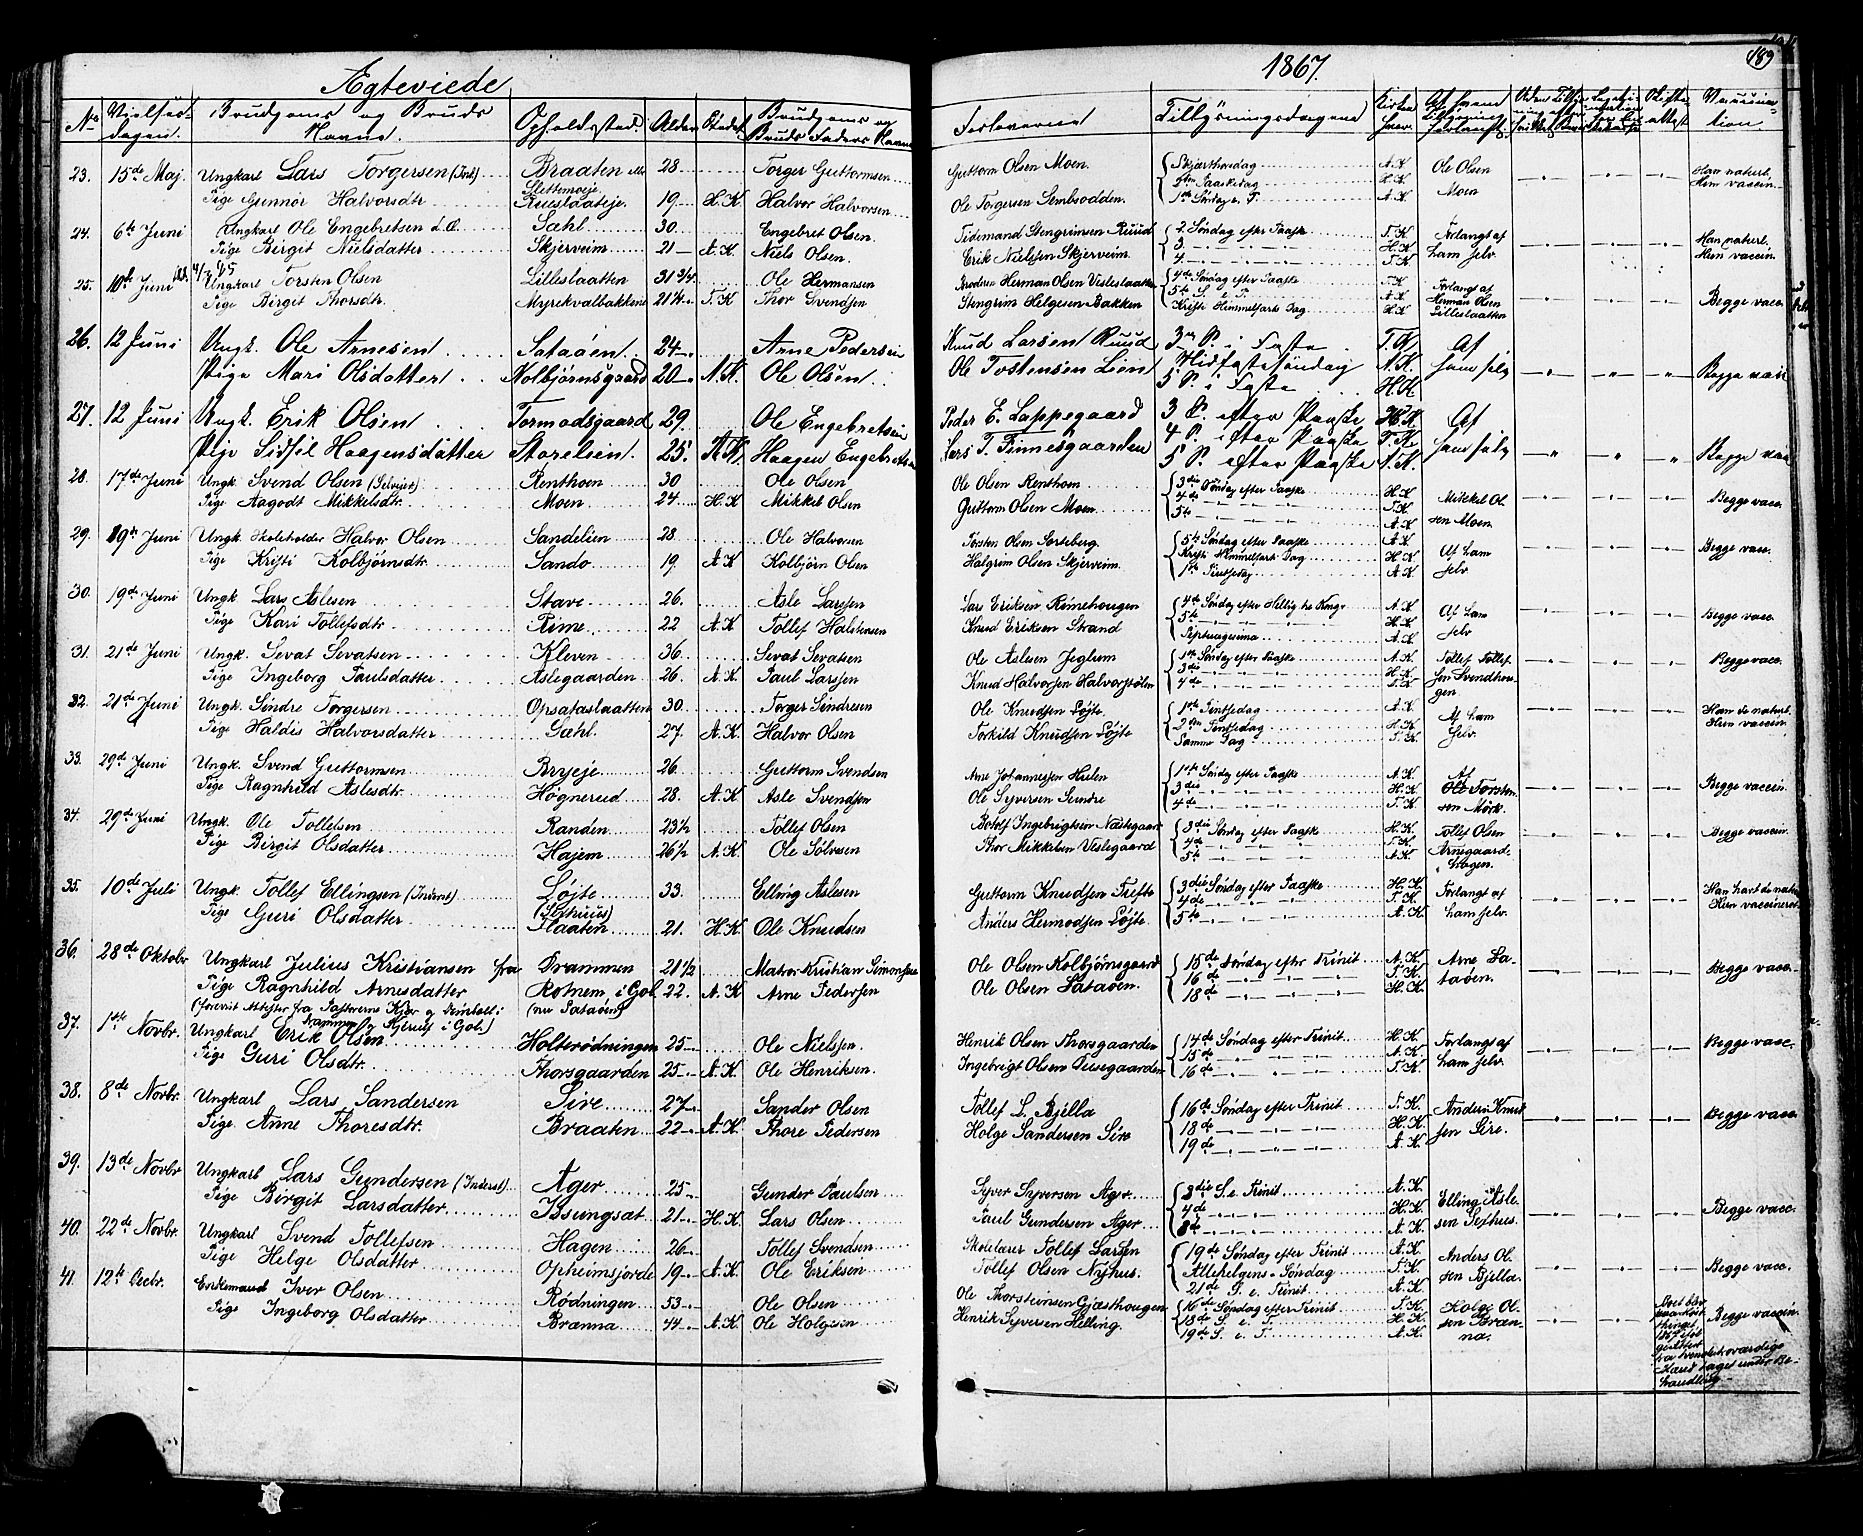 Ægteviede
No Vielses-dagen. Brudgoms og Bruds Navne. Opholdssted. Alder Stædet Brudgoms og Bruds Faders Navne
23. 15de Maj. Ungkarl Lars Torgersen (Ind.) Braaten 28 Torger Guttormsen
Slettemoeje
Pige Gunnor Halvorsdtr 19 H.K Halvor Halvorsen
24. 6te Juni Ungkarl Ole Engebretsen d.Æ. Sæhl 30. Engebret Olsen.
Pige Birgit Nielsdatter Skjerveim 21 A.K Niels Olsen.
25. 10de Juni Ungkarl Torsten Olsen Lilleslaatten 31 3/4 Ole Hermansen
Pige Birgit Thorsdtr. Myrekvalbakkene 21 1/4 T.K Thor Svendsen
26. 12 Juni Ungk. Ole Arnesen Sataøen 24 Arne Pedersen
Pige Mari Olsdatter Kolbjørnsgaard 20 A.K. Ole Olsen
27. 12 Juni Ungk. Erik Olsen Tormodsgaard 29. Ole Engebretsen
Pige Sidsel Haagensdatter Storelien 25. A.K. Haagen Engebretsen
28. 17de Juni Ungk. Svend Olsen (Selvejer) Renthom 30 Ole Olsen
Pige Aagodt Mikkelsdtr. Moen 24 H.K Mikkel Olsen
29. 19de Juni Ungk. Skoleholder Halvor Olsen Sandelien 28 Ole Halvorsen
Pige Kristi Kolbjørnsdtr. Sando 19 A K Kolbjørn Olsen
30. 19de Juni Ungk Lars Aslesen Stave 26. Asle Larssen
Pige Kari Tollefsdtr. Rime 22 A.K Tollef Halstensen
31. 21de Juni Ungk. Sevat Sevatsen Kleven 36. Sevat Sevatsen
Pige Ingeborg Paulsdatter Aslegaarden 26. A.K Paul Larssen
32. 21de Juni Ungk. Sindre Torgersen Opsataslaatten 30. Torger Sindresen
Pige Haldis Halvorsdatter Sæhl. 27. A.K Halvor Olsen
33. 29de Juni Ungk. Svend Guttormsen Bryeje 26. Guttorm Svendsen
Pige Ragnhild Aslesdtr. Høgnerud 28. A.K Asle Svendsen
34. 29de Juni Ungk. Ole Tollefsen Randen 23 1/2 Tollef Olsen
Pige Birgit Olsdatter Hajem 26 1/2 A.K. Ole Sølvesen
35. 10de Juli Ungk. Tollef Ellingsen (Inderst) Løjte 33. Elling Aslesen
Pige Guri Olsdatter Slaaten 21. H.K Ole Knudsen
36. 28de Oktobr Ungkarl Julius Kristiansen fra Drammen 21 1/2 Matros Kristian Simonsen
Pige Ragnhild Arnesdatter Rotnem i Gol 22. A.K Arne Pedersen
(forevist Attester fra Pasterne Kjær og Reinholt i (nu Sataøen)
Drammen og Hjerulf i Gol.)
37. 1ste Novbr. Ungkarl Erik Olsen Holterødningen 25 Ole Nielssen.
Pige Guri Olsdtr. Thorsgaarden 25 A.K Ole Henriksen.
38. 8de Novbr. Ungkarl Lars Sandersen Sire 27 Sander Olsen
Pige Anne Thoresdtr. Braaten 22 A.K Thore Pedersen
39. 13de Novbr Ungkarl Lars Gundersen (Inderst) Ager 25 Gunder Paulsen
Pige Birgit Larsdatter Issungsæt 21 H.K Lars Olsen
40. 22de Novbr. Ungkarl Svend Tollefsen Hagen 26 Tollef Svendsen
Pige Helge Olsdatter Opheimsjorde 19 A.K Ole Eriksen
41. 12te Decbr. Enkemand Iver Olsen Rødningen 53 Ole Olsen
Pige Ingeborg Olsdatter Brænna 44 A.K. Ole Holgesen
1867. 189
Forloverne Tillysningsdagene Vaccination.
Guttorm Olsen Moen. Skjærthorsdag A.K Ole Olsen Han naturl.
2den Paaskedag H.K Moen Hun vaccin.
Ole Torgersen Sembsodden. 1ste Søndag e. P. A.K
Tidemand Stengrimsen Ruud 2. Søndag efter Paaske T.K Forlangt af Han naturl.
Erik Nielssen Skjerveim. 3. H.K ham selv. Hun vaccin.
4. T.K
Broderen Herman Olsen Vesleslaatten 4de Søndag efter Paaske T.K Forlangt af
5te S. e. P. A.K Herman Olsen Begge vacc.
Stengrim Helgesen Bakken Kristi Himmelfarts Dag H.K Lilleslaatten
Knud Larsen Ruud 3 S. i Faste T.K Af
Ole Tostensen Lien Midfastesøndag A.K. ham selv Begge vacc
5 S. i Faste H.K
Peder E. Lappegaard 3 S. efter Paaske H.K Af
Lars T. Finnesgaarden 4 S. efter Paaske T.K. ham selv Begge vacc
5 S. efter Paaske A.K.
Ole Olsen Renthom 3die Søndag efter Paaske H.K Mikkel Ol
Guttorm Olsen Moen 4de T.K sen Moen. Begge vacc.
5te A.K
Torsten Olsen Sorteberg. 5te Søndag efter Paaske A.K
Halgrim Olsen Skjerveim. Kristi Himmelfarts Dag H.K Af ham Begge vacc.
1ste Pintsedag A.K selv
Lars Eriksen Rimehougen 4de Søndag efter Hellig tre Konge A.K Af ham
Knud Eriksen Strand 5te H.K selv Begge vacc.
Septuagesima A.K
Ole Aslesen Jeglum 1ste Søndag efter Paaske A.K Tollef Tollef
Knud Halvorsen Halvorstølen 3die H.K sen Svendhou Begge vacc.
4de T.K gen
Ole Knudsen Løjte. 1ste Pintsedag A.K Af ham Han de naturl.
Torkild Knudsen Løjte 2den Pintsedag H.K selv Hun vaccin.
Samme Dag T.K
Arne Johannessen Hulen 1ste Søndag efter Paaske A.K Af
Ole Syversen Sundre 3die H.K Ole Torsten Begge vaccin.
4de T.K sen Mørk.
Botolf Ingebrigtsen Næstegaard 3die Søndag efter Paaske H.K Tollef Olsen
Thor Mikkelsen Veslegaard 4de T.K Arnegaard Begge vaccin.
5te A.K hagen.
Guttorm Knudsen Tufte 3die Søndag efter Paaske H.K Forlangt af Han havt de natur
Anders Hermodsen Løjte 4de T.K ham selv. Hun vaccineret
5te A.K
Ole Olsen Kolbjørnsgaard 15de Søndag efter Trinit A.K Arne Sa-
Ole Olsen Sataøen. 16de T.K taøen. Begge vacc.
18de H.K
Henrik Olsen Thorsgaarden 14de Søndag efter Trinit H.K Forlangt af
Ingebrigt Olsen Tusegaarden 15de A.K ham selv. Begge vacc.
16de T.K
Tollef L. Bjella 16de Søndag efter Trinit T.K Anders Knud
Holge Sandersen Sire 18de H.K sen Sire. Begge vacc.
19de A.K
Syver Syversen Ager 3die S. e. Trinit A.K Elling Asle
Paul Gundersen Ager 4de H.K sen Sethus. Begge vacc.
8de A.K
Skolelærer Tollef Larsen 19de Søndag efter Trinit A.K Anders Ol
Tollef Olsen Nyhus. Allehelgens-Søndag T.K sen Bjella. Begge vacc.
21de S. e. Trinit. A.K
Ole Thorsteinsen Gjæsthougen 16de Søndag efter Trinit T.K Holge Ol
Henrik Syversen Helling. 18de S. e. T. H.K sen Bræn Begge vaccin.
19de S. e. T. A.K na.
1867
Haand taget under Be-
handling